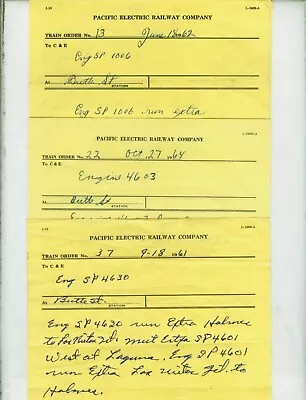 PACIFIC ELECTRIC RAILWAY COMPANY
TRAIN ORDER No. 13 June 18 1962
To C & E
Eng SP 1006
At Butte St
STATION
Eng SP 1006 run extra
PACIFIC ELECTRIC RAILWAY COMPANY
TRAIN ORDER No. 22 Oct 27 1964
To C & E
Engine 4603
At Butte St
STATION
PACIFIC ELECTRIC RAILWAY COMPANY
TRAIN ORDER No. 37 9-18 1961
To C & E
Eng SP 4630
At Butte St.
STATION
Eng SP 4620 run Extra Holmes
to Los Nietos Jct. meet Extra SP4601
West at Laguna. Eng SP 4601
run Extra Los Nietos Jct. to
Holmes.